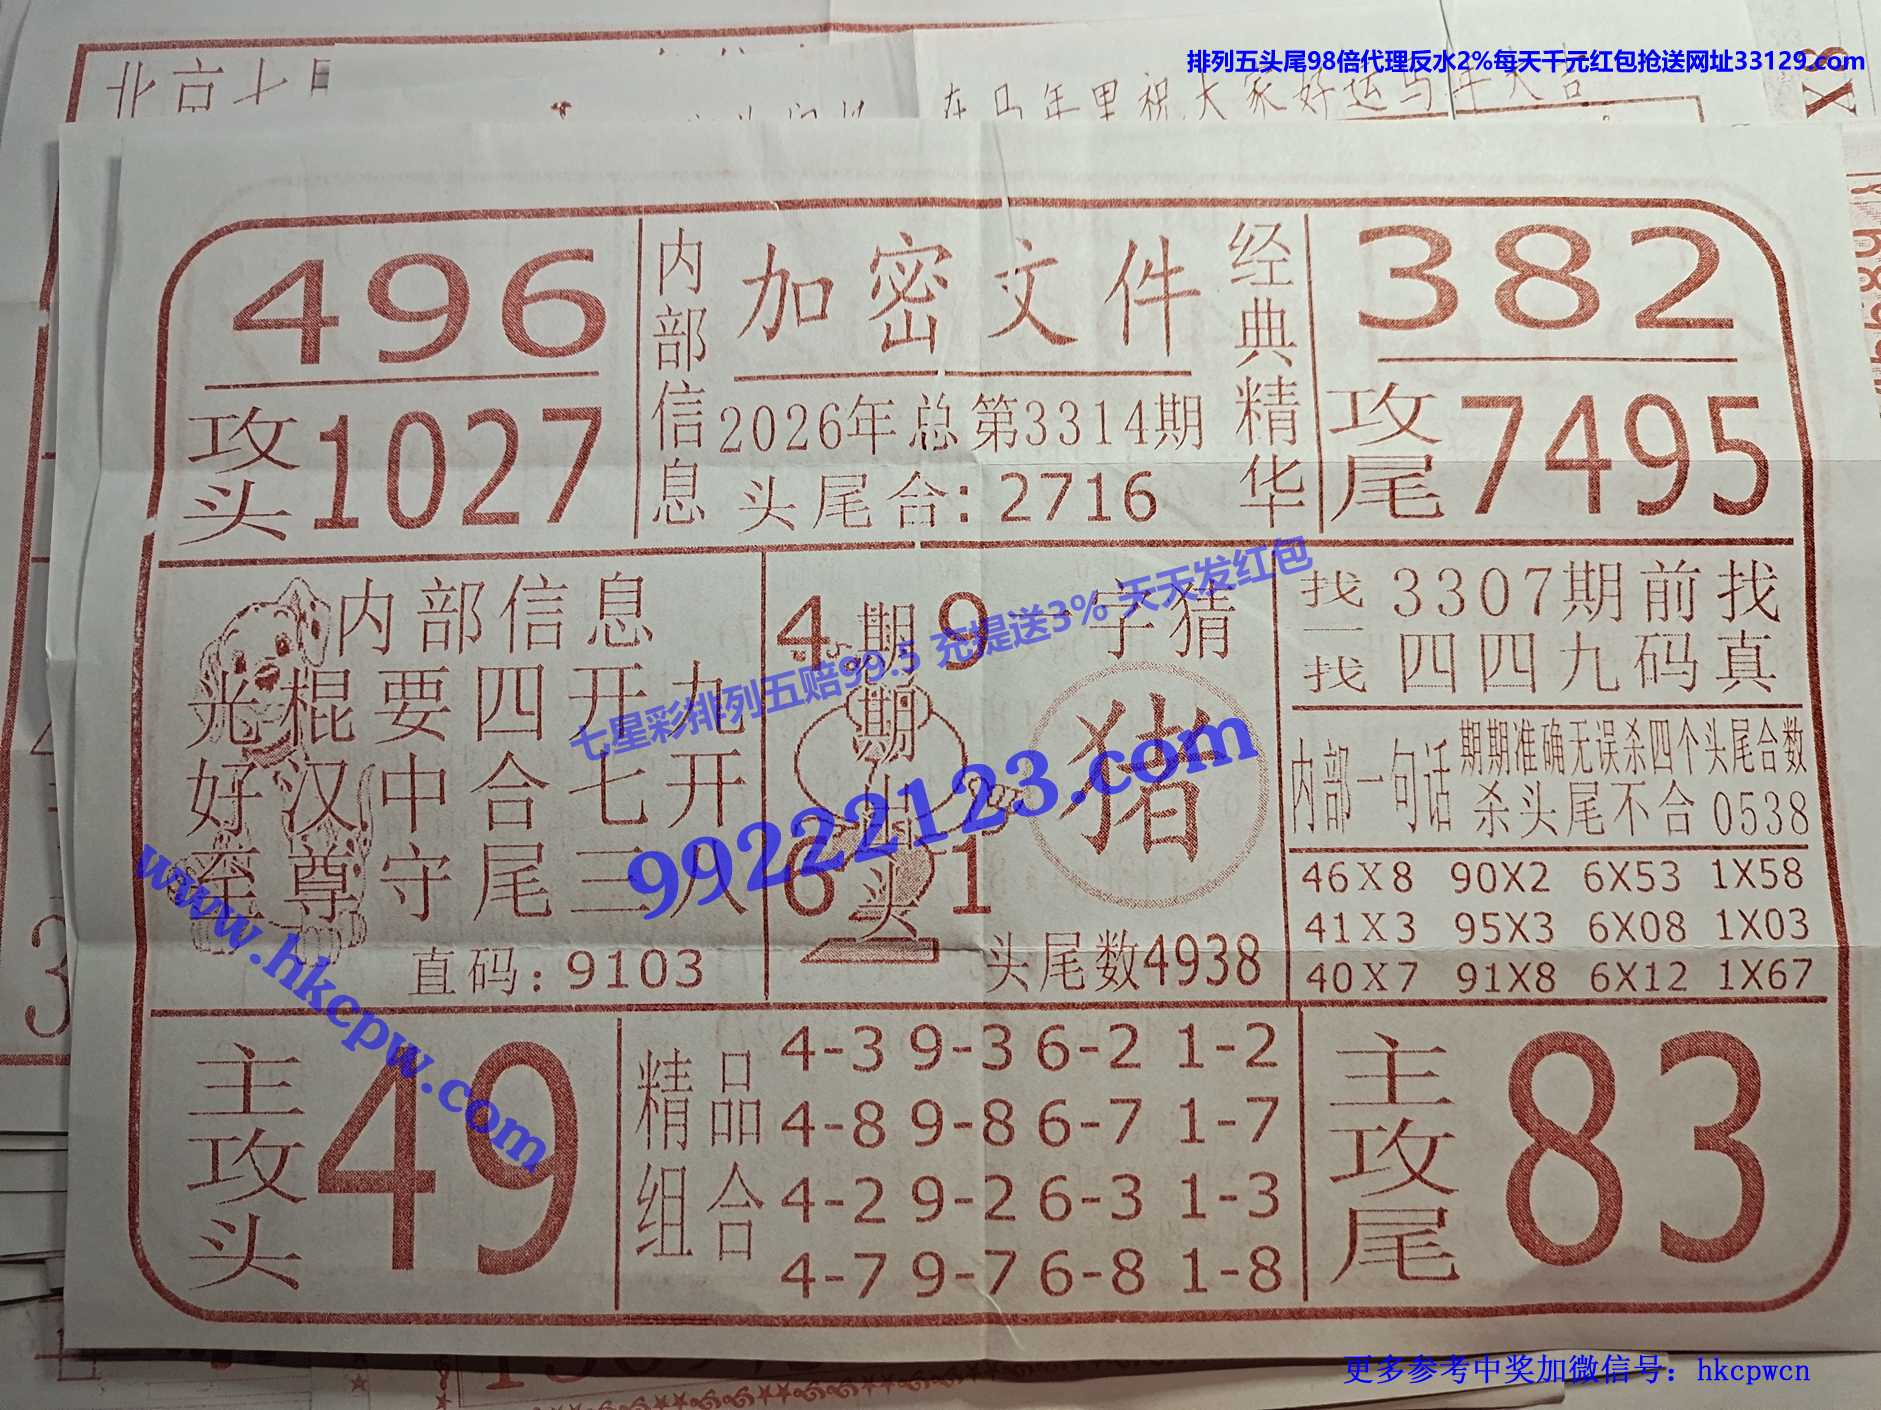 排列五头尾98倍代理反水2%每天千元红包抢送网址33129.com
在马年里祝大家好运马年大吉
496
攻头1027
内部信息
加密文件
2026年总第3314期
头尾合:2716
经典精华
382
攻尾7495
内部信息
光棍要四开九
好汉中合七开
至尊守尾三八
直码:9103
4 9
期期出头
6 1
一字猜
猪
头尾数4938
找一找
3307期前找
四四九码真
内部一句话
期期准确无误杀四个头尾合数
杀头尾不合0538
46X8 90X2 6X53 1X58
41X3 95X3 6X08 1X03
40X7 91X8 6X12 1X67
主攻头
49
精品组合
4-3 9-3 6-2 1-2
4-8 9-8 6-7 1-7
4-2 9-2 6-3 1-3
4-7 9-7 6-8 1-8
主攻尾
83
七星彩排列五赔99.5 充提送3% 天天发红包
99222123.com
www.hkcpw.com
更多参考中奖加微信号：hkcpwcn